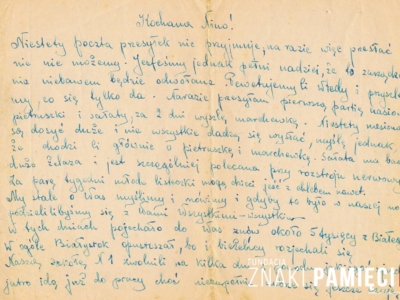 Kochana Nino!
Niestety poczta przesyłek nie przyjmuje, na razie więc przesłać
nic nie możemy. Jesteśmy jednak pełni nadziei, że to zarządze
nie niebawem będzie odwołane
my, co się tylko da. Narazie pierwszą partię nasion
pietruszki i sałaty, za 2 dni wyślę marchewkę. Niestety nasiona
są dosyć duże i nie wszystkie dadzą się wysłać, myślę jednak
że chodzi Ci głównie o pietruszkę i marchewkę. Sałata ma bar
dużo żelaza i jest szczególniej polecana przy rozstroju nerwowym
Za parę tygodni młode listeczki mogą dzieci jeść z chlebem nawet.
My stale o Was myślimy i mówimy i gdyby to było w naszej mo
podzielilibyśmy się z Wami wszystkim
W tych dniach pojechało do Was znów około 5 tysięcy z Białego
W ogóle Białystok opustoszał, bo i bieżeńcy rozjechali się
Naszą szkołę N 1 zwolnili na kilka dni
jutro idą już do pracy choć
FUNDACJA
ZNAKI PAMIĘCI